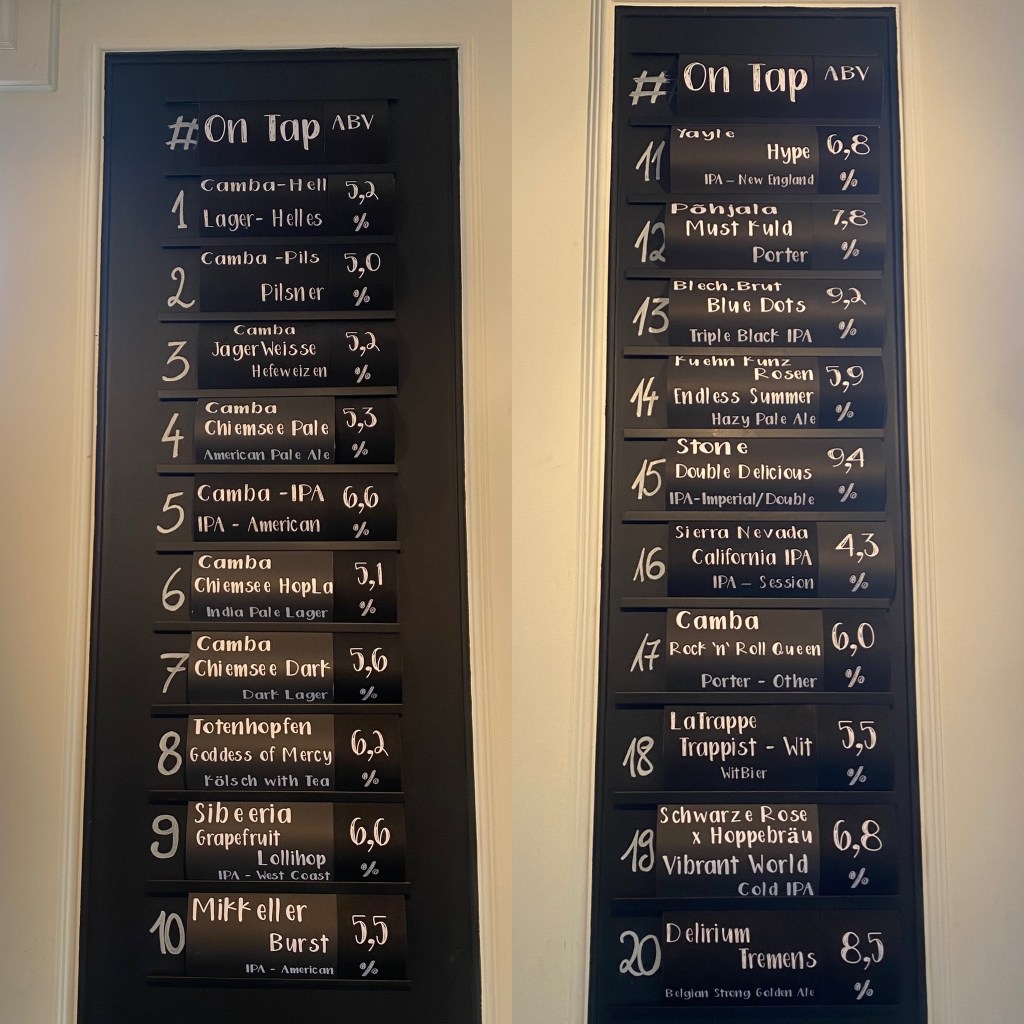 # On Tap ABV
1 Camba-Hell 5,2
Lager- Helles %
2 Camba -Pils 5,0
Pilsner %
3 Camba 5,2
JagerWeisse
Hefeweizen %
4 Camba 5,3
Chiemsee Pale
American Pale Ale %
5 Camba -IPA 6,6
IPA - American %
6 Camba 5,1
Chiemsee HopLa
India Pale Lager %
7 Camba 5,6
Chiemsee Dark
Dark Lager %
8 Totenhopfen 6,2
Goddess of Mercy
Kölsch with Tea %
9 Sibeeria 6,6
Grapefruit
Lollihop
IPA - West Coast %
10 Mikkeller 5,5
Burst
IPA - American %
# On Tap ABV
11 Yayle 6,8
Hype
IPA – New England %
12 Põhjala 7,8
Must Kuld
Porter %
13 Blech.Brut 9,2
Blue Dots
Triple Black IPA %
14 Kuehn Kunz 5,9
Rosen
Endless Summer
Hazy Pale Ale %
15 Stone 9,4
Double Delicious
IPA-Imperial/Double %
16 Sierra Nevada 4,3
California IPA
IPA – Session %
17 Camba 6,0
Rock 'n' Roll Queen
Porter - Other %
18 LaTrappe 5,5
Trappist - Wit
WitBier %
19 Schwarze Rose 6,8
x Hoppebräu
Vibrant World
Cold IPA %
20 Delirium 8,5
Tremens
Belgian Strong Golden Ale %